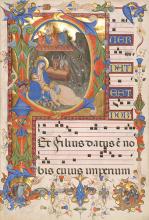 P
UER
NAT
EST
NOB
Et filius datus ē no
bis cuius imperium